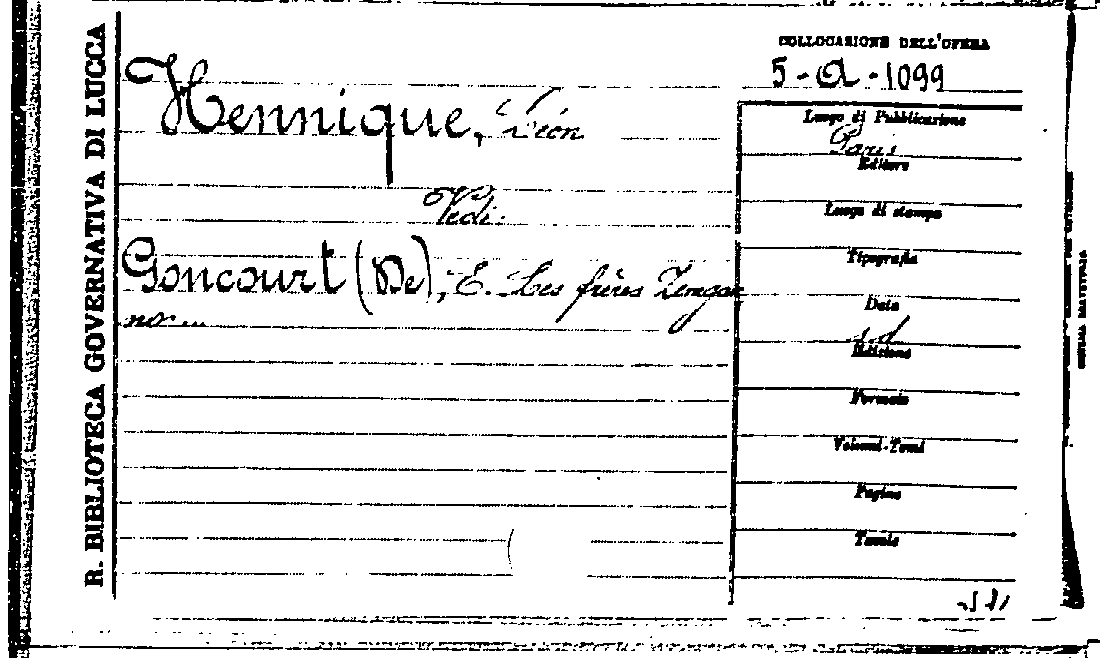 R. BIBLIOTECA GOVERNATIVA DI LUCCA
COLLOCAZIONE DELL'OPERA
5-a-1099
Hennique, Léon
Vedi:
Goncourt (De), E. Les frères Zengan
no....
Luogo di Pubblicazione
Paris
Editore
Luogo di stampa
Tipografia
Data
s.d
Edizione
Formato
Volumi-Tomi
Pagine
Tavole